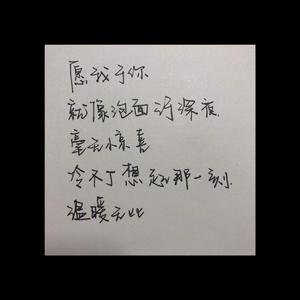 愿我于你
就像泡面于深夜
毫无惊喜
冷不丁想起那一刻
温暖无比